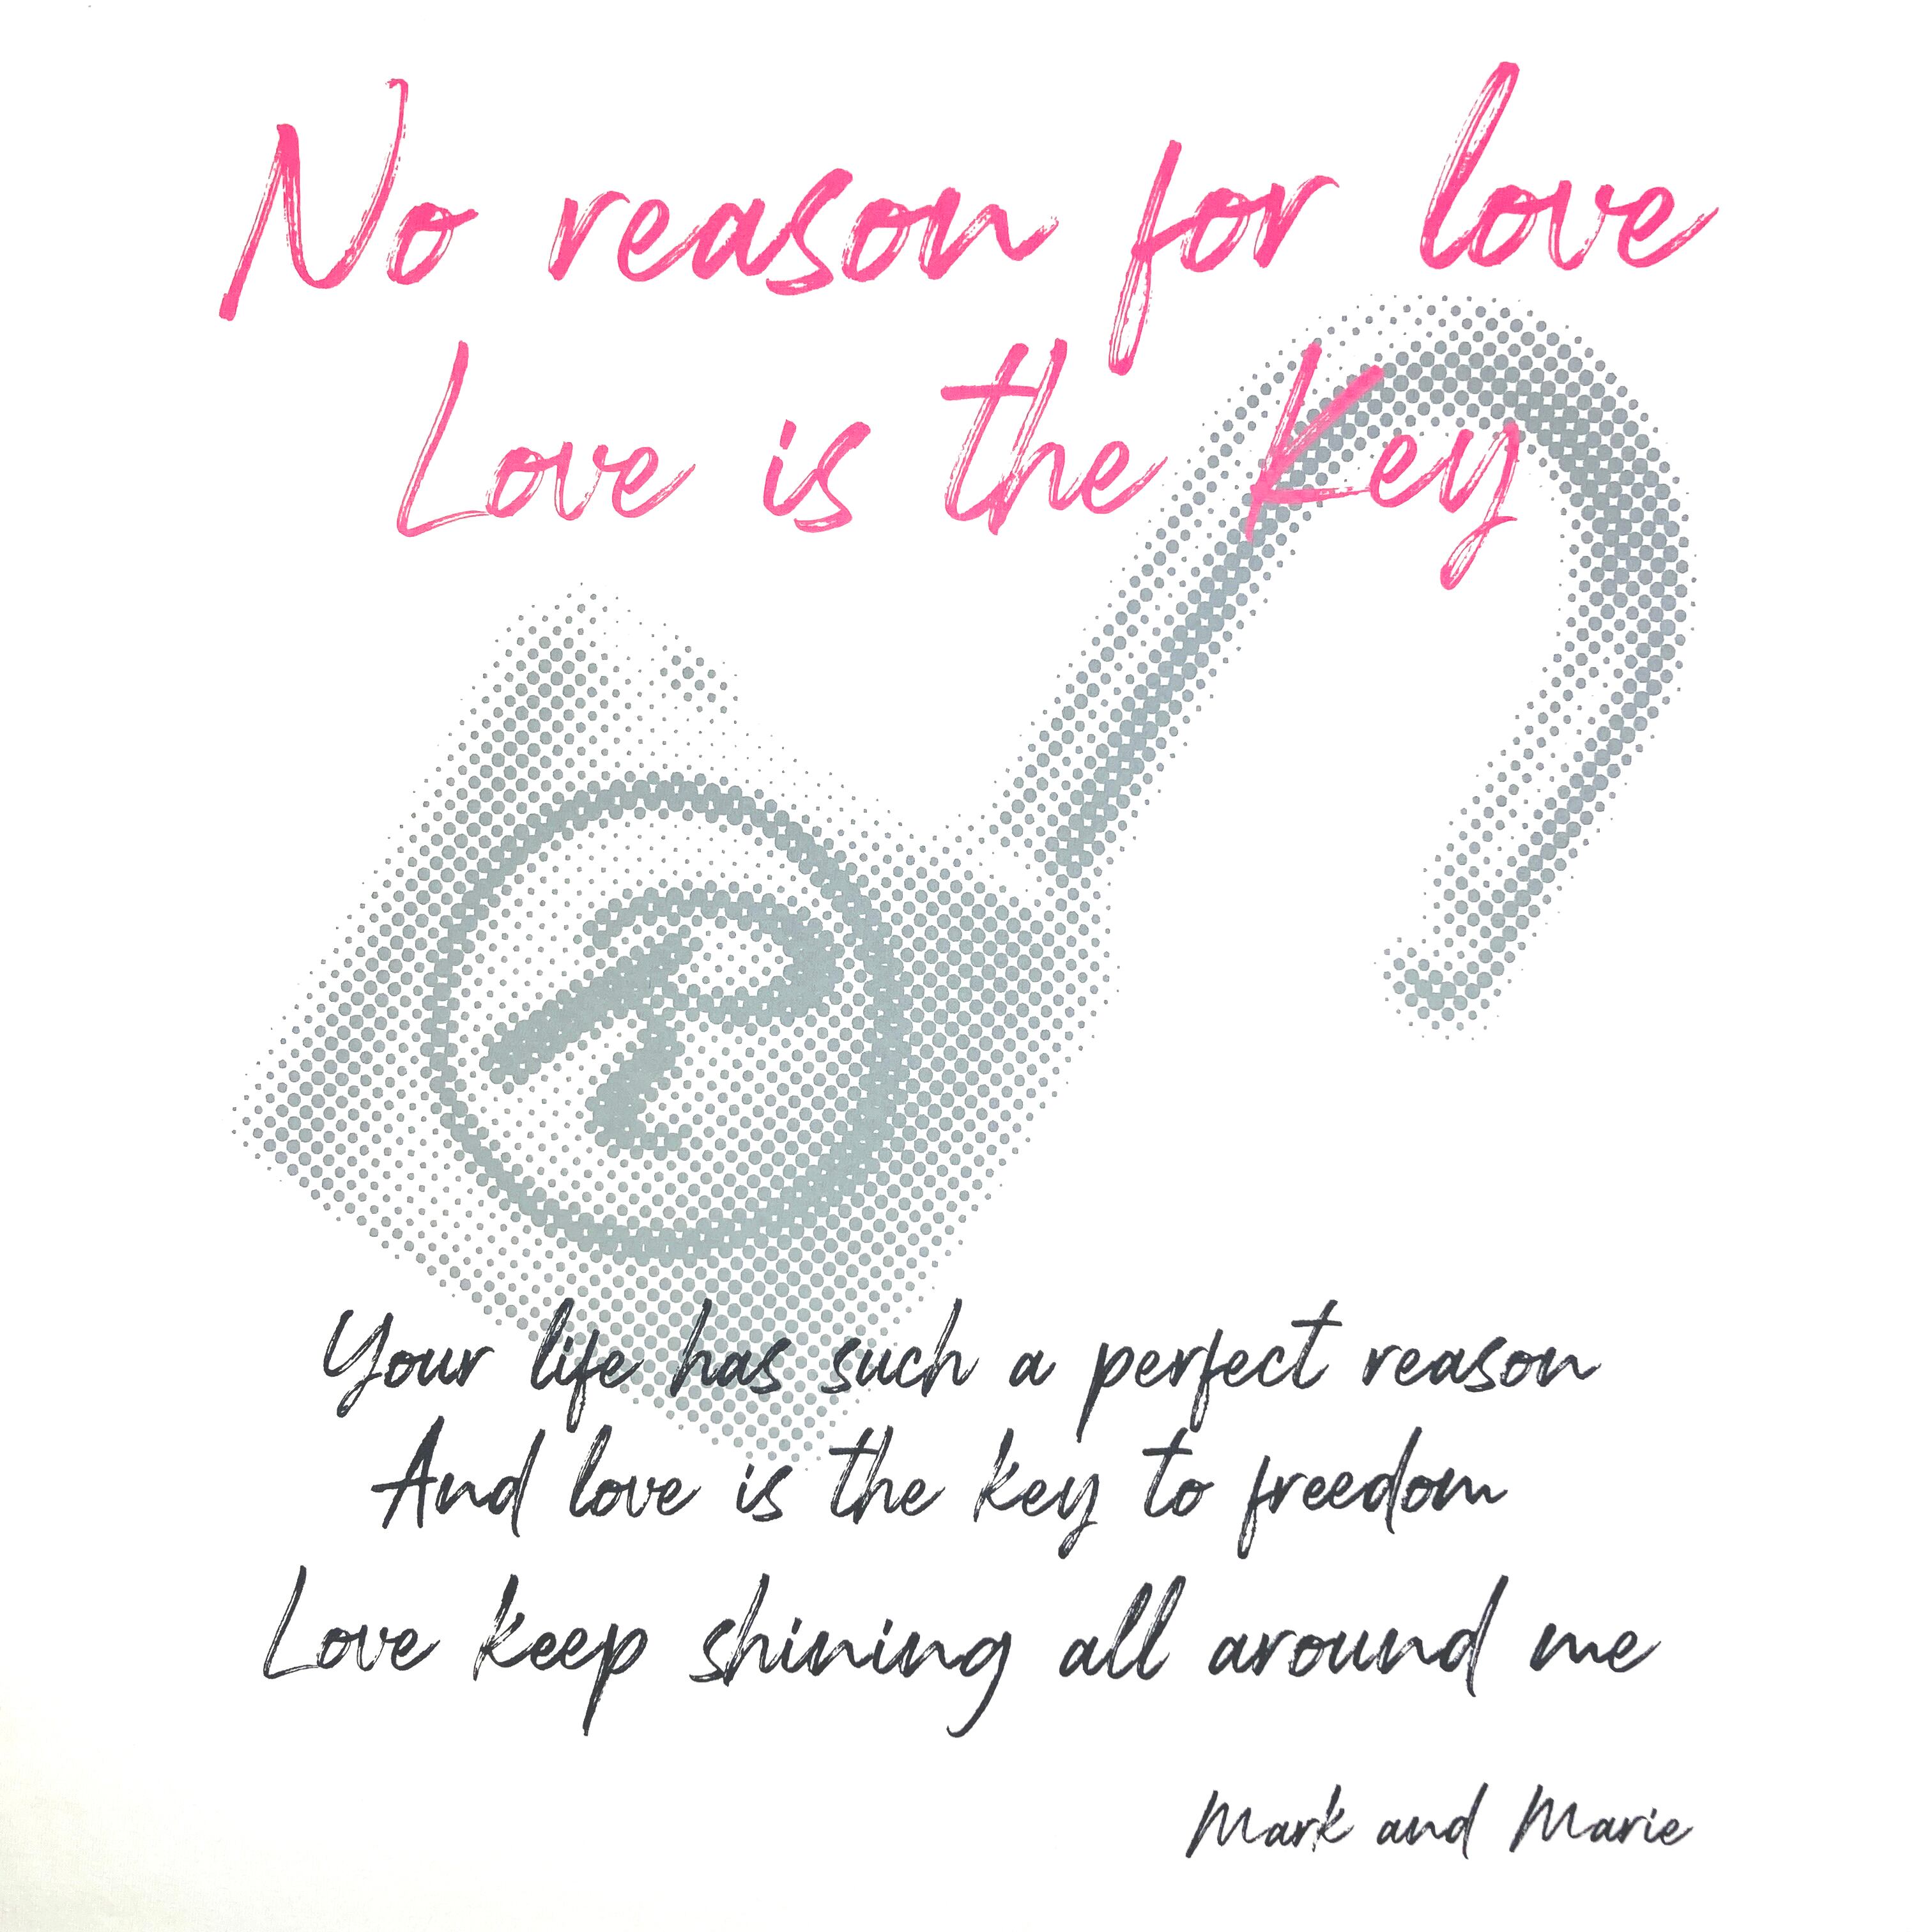 No reason for love
Love is the Key
Your life has such a perfect reason
And love is the key to freedom
Love keep shining all around me
Mark and Marie